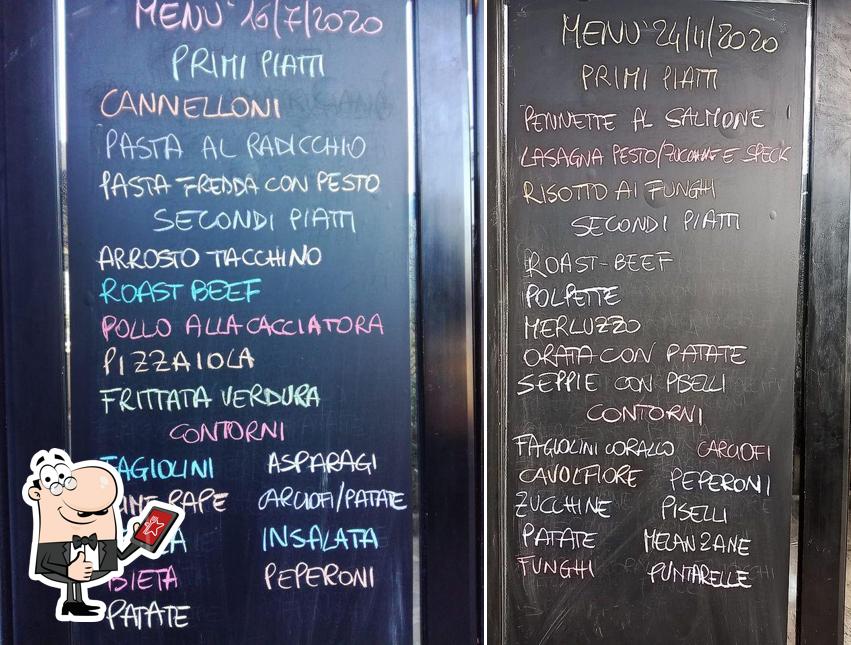 MENU' 16/7/2020
PRIMI PIATTI
CANNELLONI
PASTA AL RADICCHIO
PASTA FREDDA CON PESTO
SECONDI PIATTI
ARROSTO TACCHINO
ROAST BEEF
POLLO ALLA CACCIATORA
PIZZAIOLA
FRITTATA VERDURA
CONTORNI
FAGIOLINI ASPARAGI
RAPE CARCIOFI/PATATE
INSALATA
BIETA PEPERONI
PATATE
MENU' 24/11/2020
PRIMI PIATTI
PENNETTE AL SALMONE
LASAGNA PESTO/ZUCCHINE E SPECK
RISOTTO AI FUNGHI
SECONDI PIATTI
ROAST-BEEF
POLPETTE
MERLUZZO
ORATA CON PATATE
SEPPIE CON PISELLI
CONTORNI
FAGIOLINI CORALLO CARCIOFI
CAVOLFIORE PEPERONI
ZUCCHINE PISELLI
PATATE MELANZANE
FUNGHI PUNTARELLE